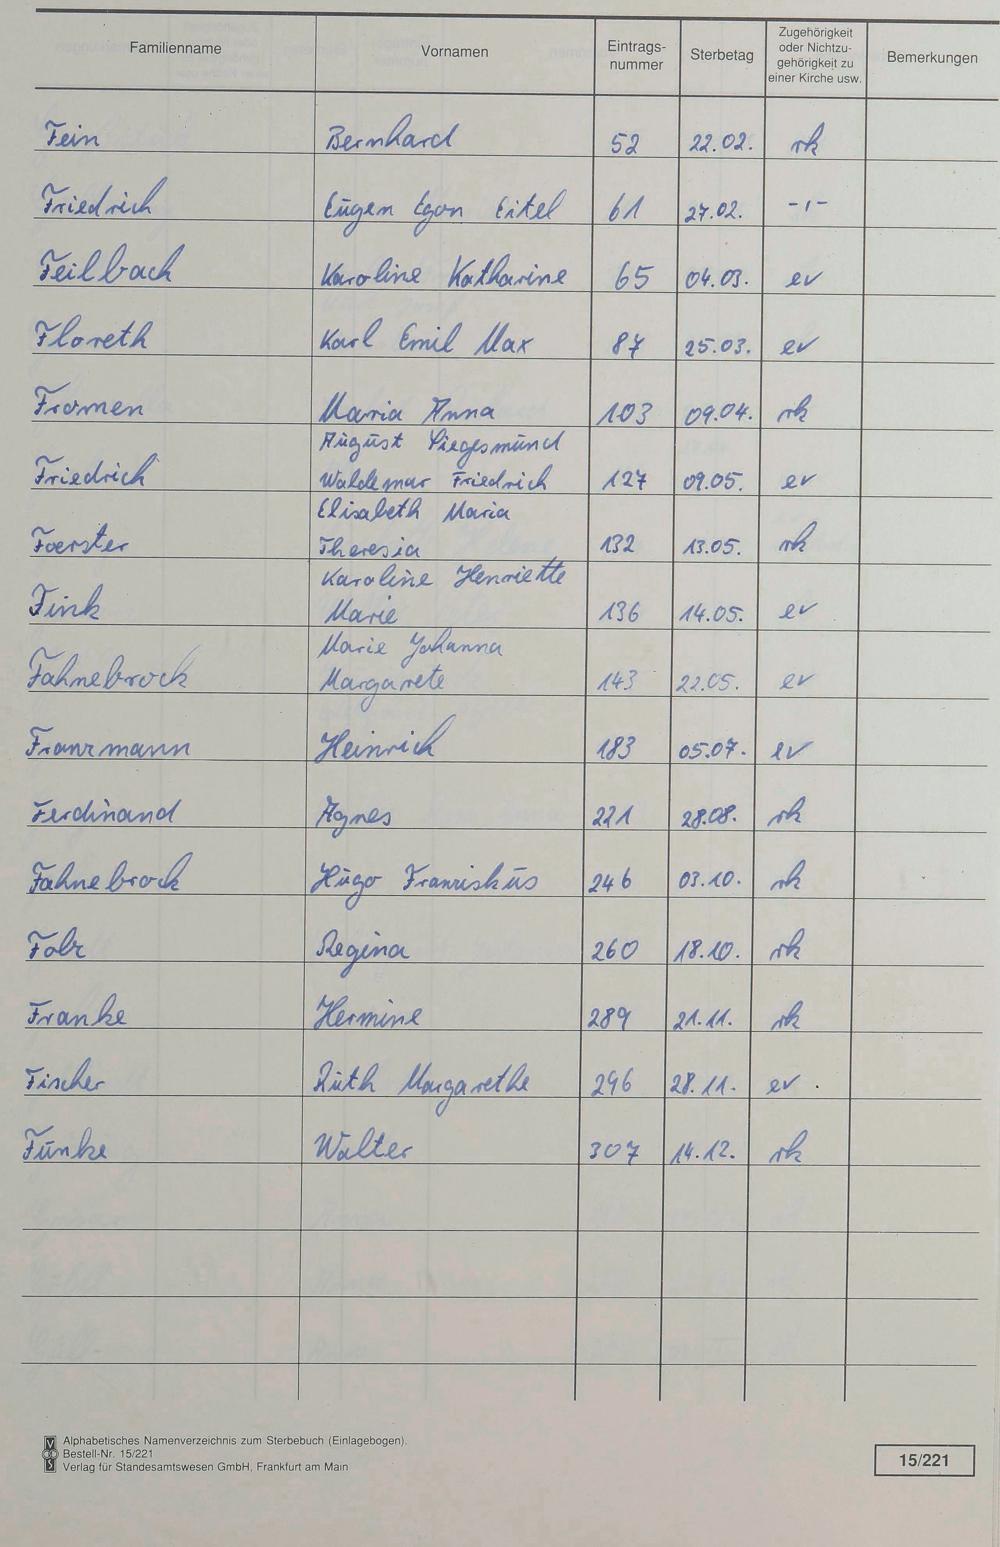 Familienname Vornamen Eintrags-nummer Sterbetag Zugehörigkeit oder Nichtzu-gehörigkeit zu einer Kirche usw. Bemerkungen
Fein Bernhard 52 22.02. rk
Friedrich Eugen Egon Eitel 61 27.02. -,-
Feilbach Karoline Katharine 65 04.03. ev
Floreth Karl Emil Max 87 25.03. ev
Fromen Maria Anna 103 09.04. rk
August Siegesmund
Friedrich Waldemar Friedrich 127 09.05. ev
Elisabeth Maria
Foerster Theresia 132 13.05. rk
Karoline Henriette
Fink Marie 136 14.05. ev
Marie Johanna
Fahnebrock Margarete 143 22.05. ev
Franzmann Heinrich 183 05.07. ev
Ferdinand Agnes 221 28.08. rk
Fahnebrock Hugo Franziskus 246 03.10. rk
Regina 260 18.10. rk
Franke Hermine 289 21.11. rk
Fischer Ruth Margarethe 296 28.11. ev.
Funke Walter 307 14.12. rk
Alphabetisches Namenverzeichnis zum Sterbebuch (Einlagebogen).
Bestell-Nr. 15/221
Verlag für Standesamtswesen GmbH, Frankfurt am Main
15/221